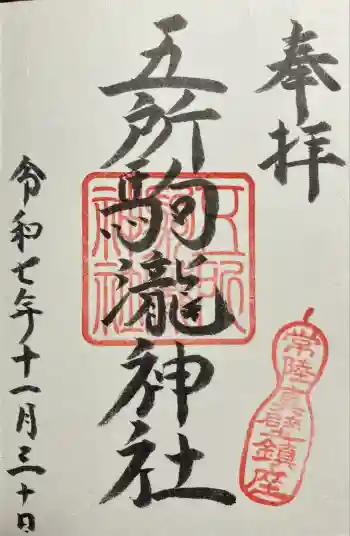 奉拝
五所駒瀧神社
令和七年十一月三十日
常陸真壁鎮座